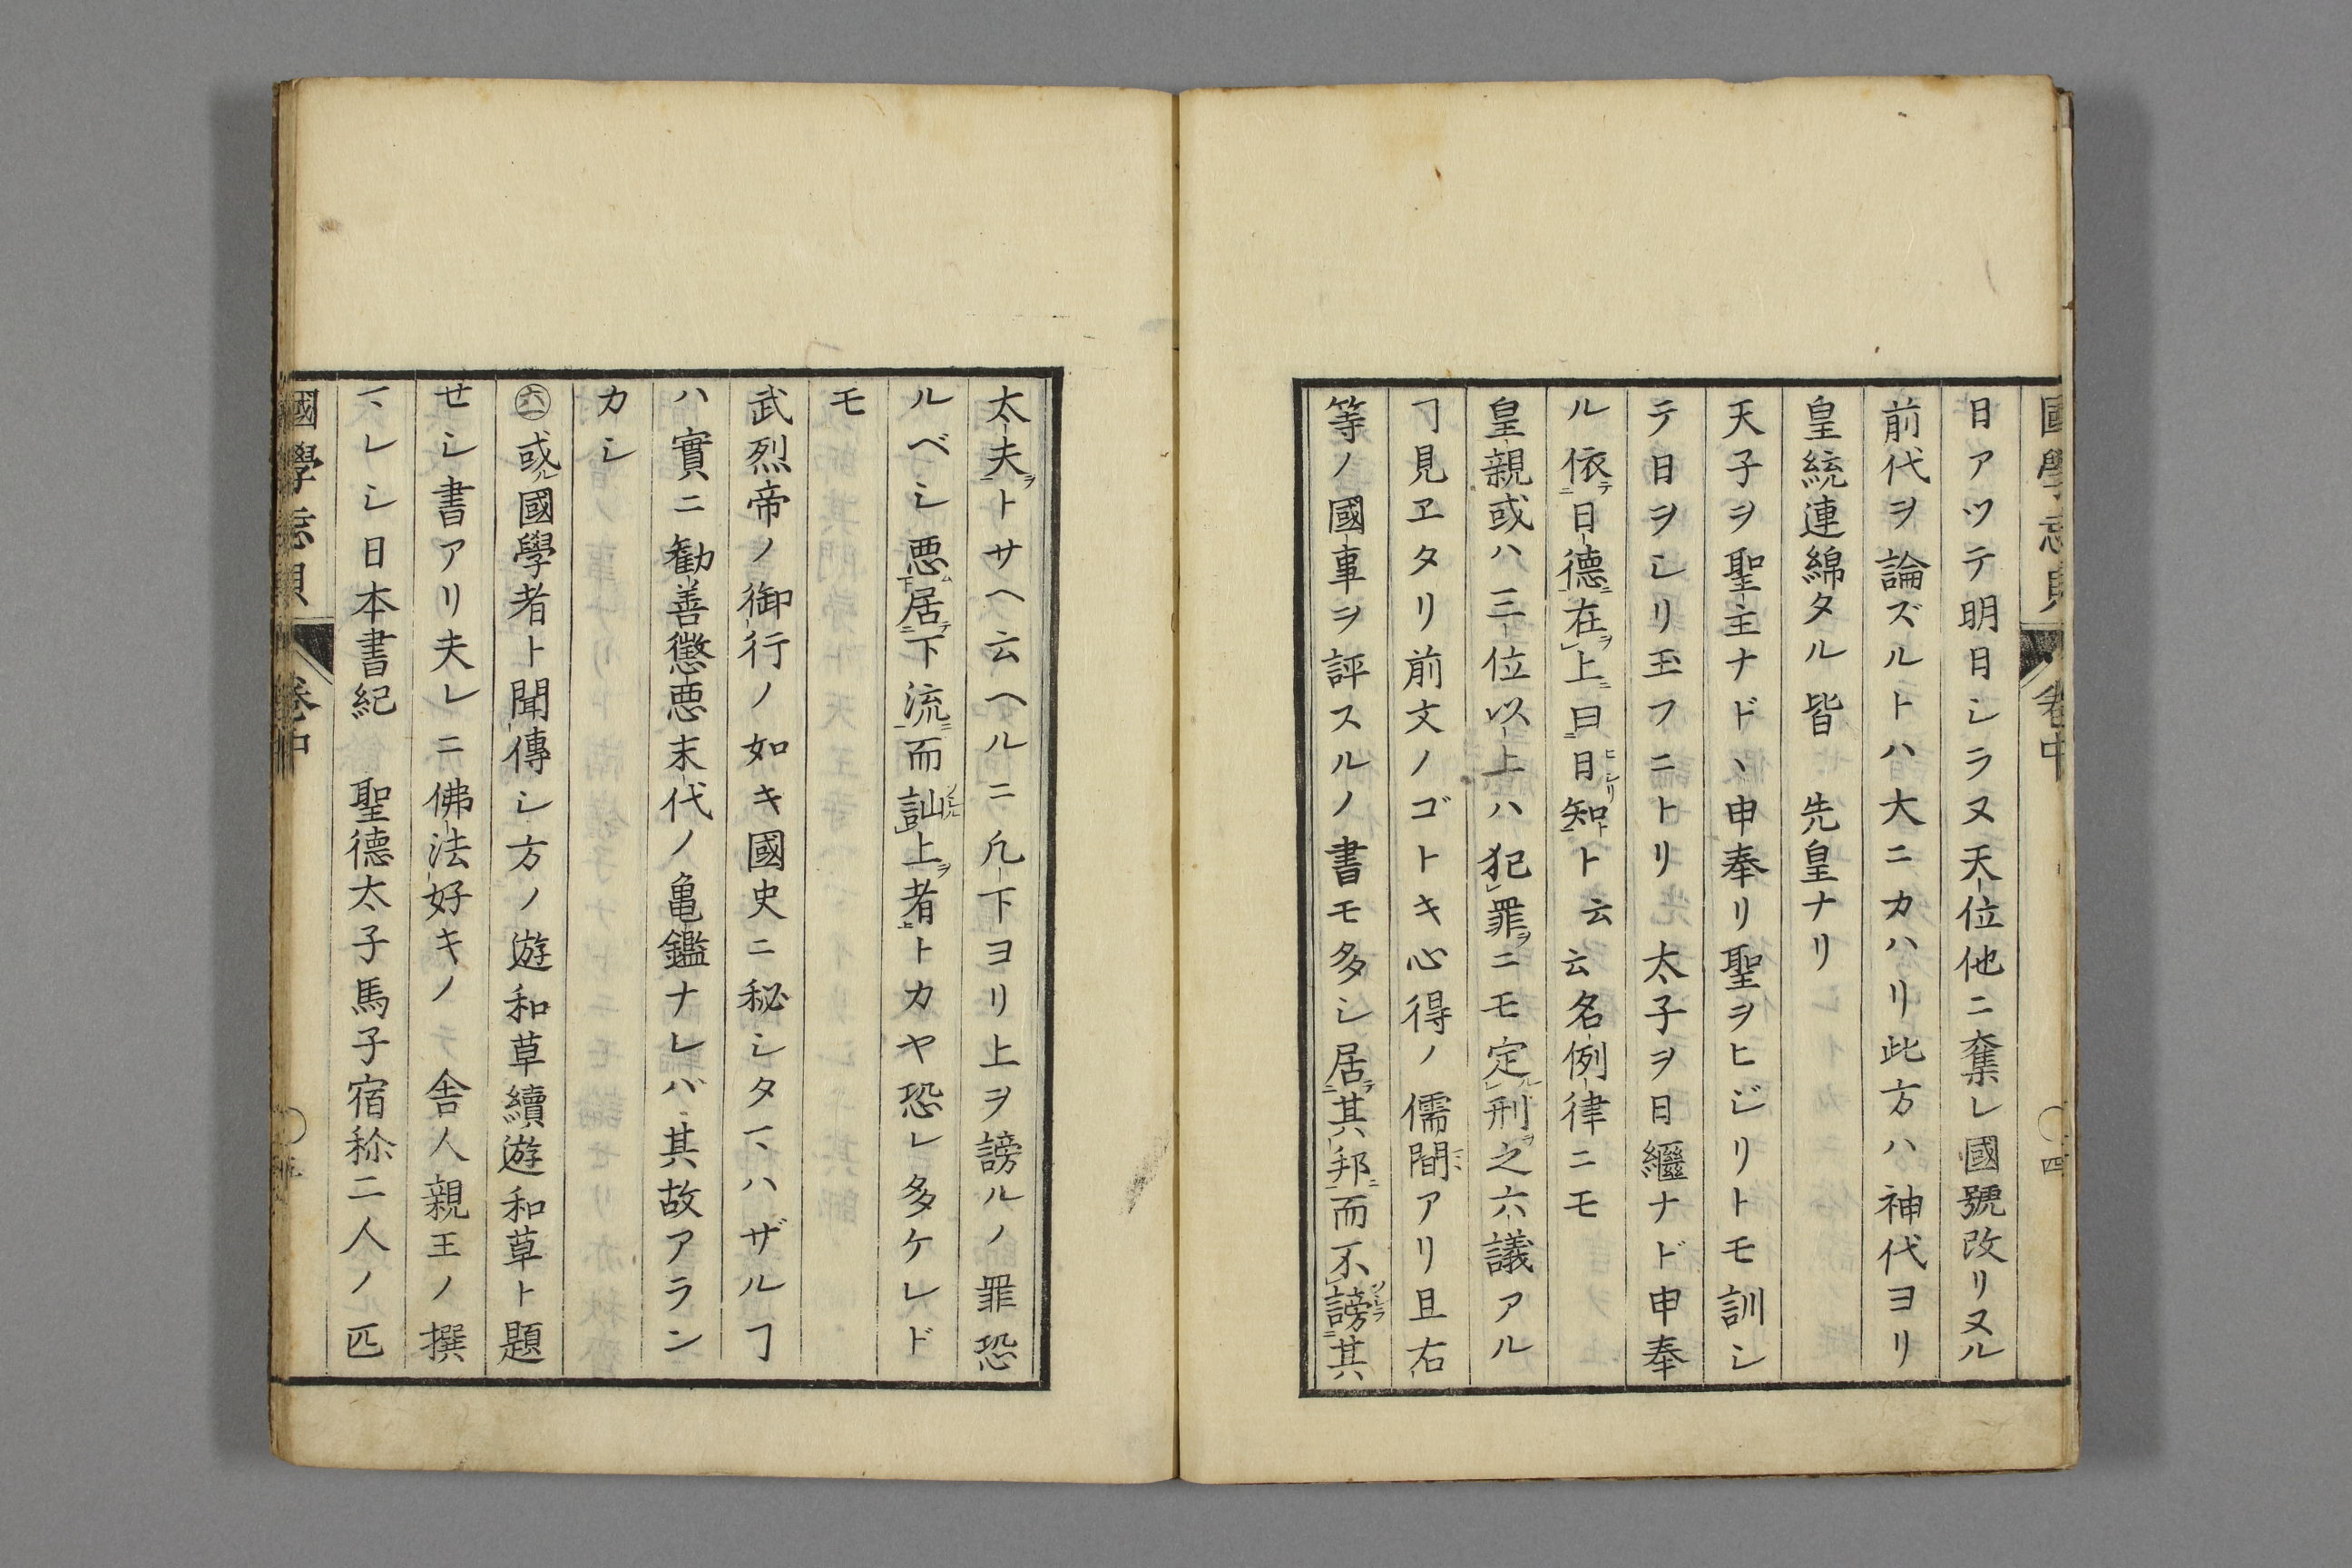 日アツテ明日シラヌ天位他ニ奪レ國號改リヌル
前代ヲ論ズルトハ大ニカハリ此方ハ神代ヨリ
皇統連綿タル皆 先皇ナリ
天子ヲ聖主ナド、申奉リ聖ヲヒジリトモ訓シ
テ日ヲシリ玉フニトリ太子ヲ日繼ナド申奉
ル依テ日德ニ在ヲ上ニ曰ニ日知ヒジリトト云云名例律ニモ
皇親或ハ三位以上ハ犯罪ヲニモ定ルニ刑ヲ之六議アル
ヿ見ヱタリ前文ノゴトキ心得ノ儒間ママアリ且右
等ノ國事ヲ評スルノ書モ多シ居テ其邦ニ而不謗ソシラ其
太夫ヲトサヘ云ヘルニ凢下ヨリ上ヲ謗ルノ罪恐
ルベシ悪ム居テ下流ニ而訕ソシル上ヲ者トカヤ恐レ多ケレド
モ
武烈帝ノ御行ノ如キ國史ニ秘シタマハザルヿ
ハ實ニ勸善懲悪末代ノ亀鑑ナレバ其故アラン
カシ
㊅或ル國學者ト聞傳シ方ノ遊和草續遊和草ト題
セシ書アリ夫レニ佛法好キノ 舎人親王ノ撰
マレシ日本書紀 聖德太子馬子宿祢二人ノ匹
國學忘貝 卷中